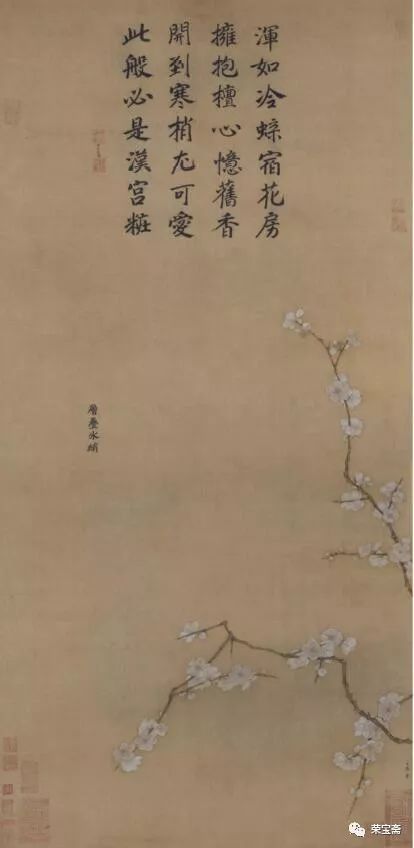 渾如冷蝶宿花房
擁抱檀心憶舊香
開到寒梢尤可愛
此般必是漢宮粧
層疊冰綃
荣宝斋